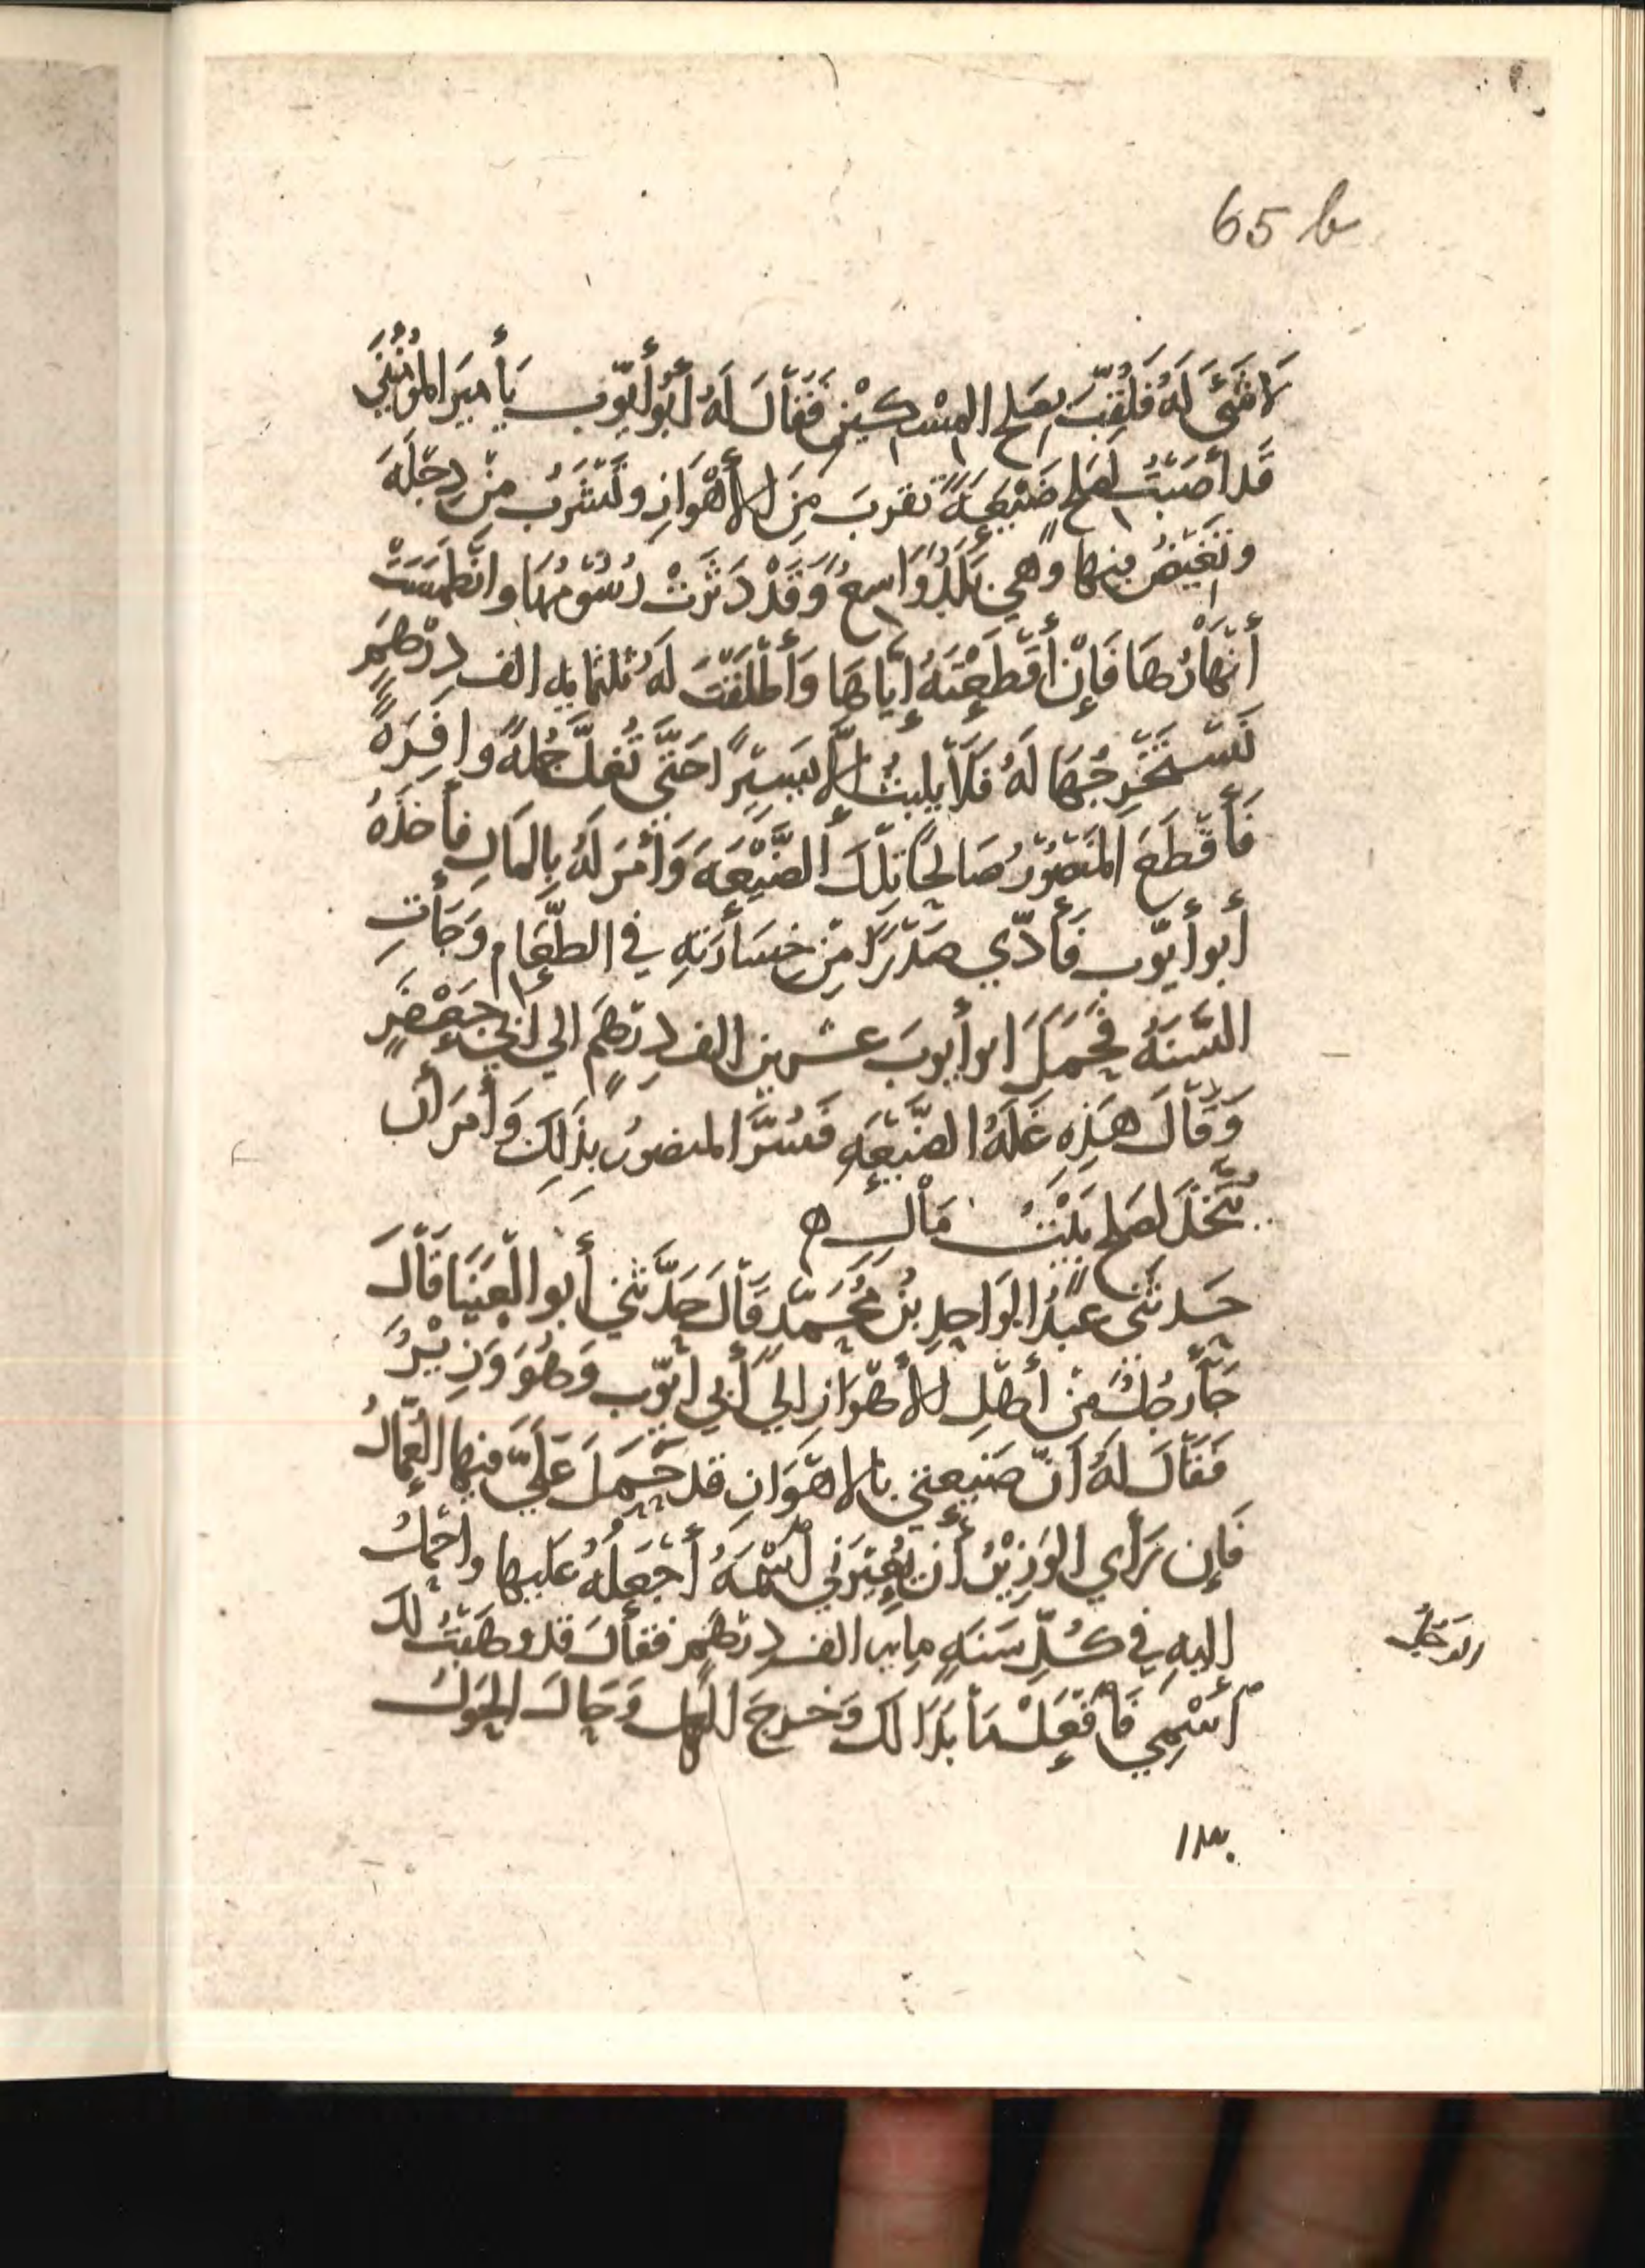 65 b
لَا شَئَ لَهُ فَلُقِّبَ بصَلح المِسْكِيْنِ فَقَالَ لَهُ أَبُو أَيّوب يَأمِيرَ المؤُمِنِينَ
قَد أصَبْتُ لصَلح ضَيْعَةً تقربَ مِنَ الأَهْوَازِ وتَشرَبُ مِنْ دِجْلَةَ
وتَغيْضُ فِيها وهي بَلَدٌ وَاسعٌ وَقَدْ دَثَرَتْ رُسُومُهَا وانَطمَسَتْ
أَنْهَارُهَا فَإِنْ أَقْطَعْتَهُ إِيّاهَا وَأَطْلَقْتَ لَهُ ثلثمايه الف دِرْهَمٍ
نَسْتَخْرِجُهَا لَهُ فَلَا يلبثُ إلّا يَسِيْراً حَتَّى تُغلَّ جُملَةً وافِرَةً
فَأَقْطَعَ المَنْصُوْرُ صَالحًا تِلْكَ الضَّيْعَةَ وَأَمَرَ لَهُ بِالمَالِ فأخذَهُ
أبو أيّوب فَأَدّي صَدْرًا مِنْ خسَارَتِهِ في الطَّعَام وَجَأتِ
السَّنَةُ فحَمَلَ ابو أيوبَ عشرين الف دِرْهَمٍ الي ابي جَعْفَرٍ
وَقَالَ هَذِهِ غَلَّةُ الضَّيْعَةِ فَسُرَّ المنصورُ بذَلِكَ وَأَمَرَ أن
يُتَّخذَ لصَلح بَيْتُ مَالٍ ه
حَدثَنَى عَبْدُ الوَاحِدِ بْنُ مُحَمَّدٍ قَالَ حَدَّثَنِي أَبو الْعَيْنَا قَالَ
جَأَ رَجُلٌ مِنْ أَهْلِ الأَهْوَازِ الي أَبي أيّوب وَهُوَ وَزِيْرٌ
فَقَالَ لَهُ أنّ ضَيعتي بالاهْوَازِ قد حَمَلَ عَلَيَّ فيها العُمّالُ
فَإِن رَأي الوَزِيْرُ أَن يُعِيْرَنِي أسْمَهُ أَجْعَلُهُ عَليها واحْملُ
اليهِ في كُلِّ سَنَةٍ مايه الف دِرْهَمٍ فقأل قد وهَبْتُ لكَ
أسْمِي فَأفْعَلْ مَا بَدَا لكَ وَخرجَ الرجل وَحَالَ الحَولُ
الرَجُل